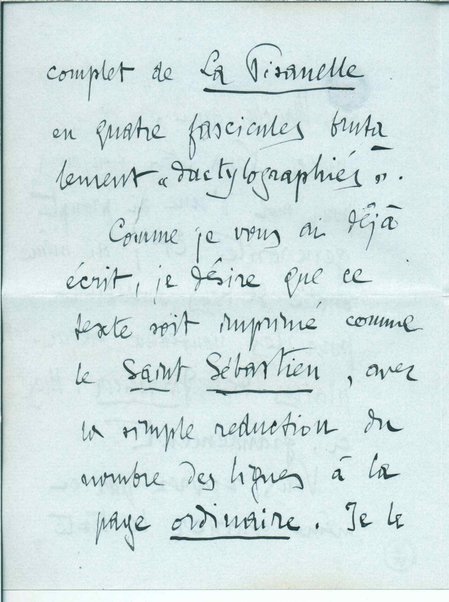 complet de La Pisanelle
en quatre fascicules bruta
lement « dactylographiés ».
Comme je vous ai déjà
écrit, je désire que ce
texte soit imprimé comme
le Saint Sébastien, avec
la simple reduction du
nombre des lignes à la
page ordinaire. Je le